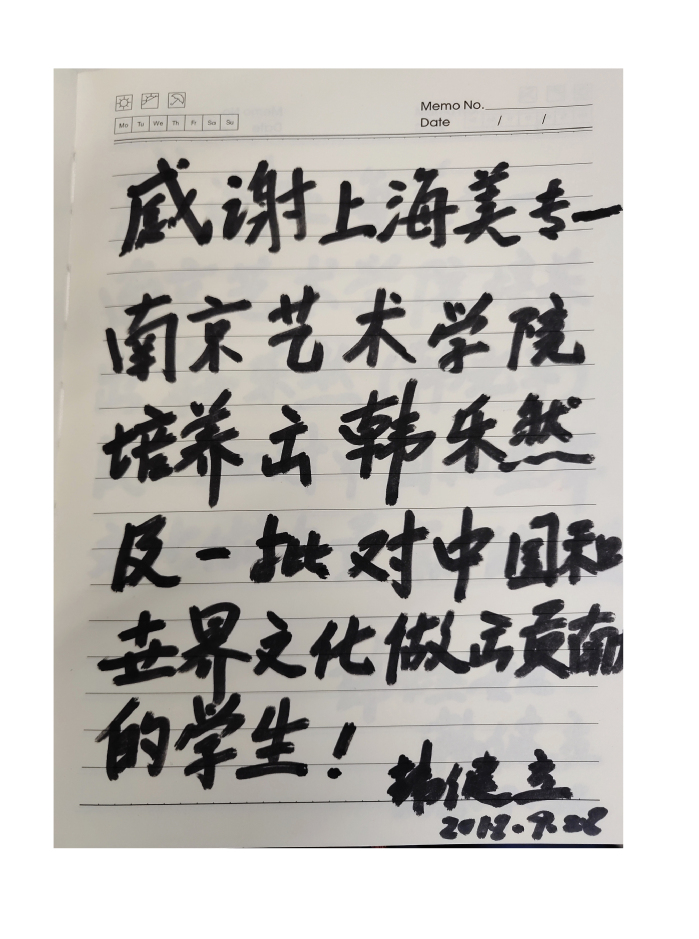 Memo No.
Mo Tu We Th Fr Sa Su
Date / /
感谢上海美专一
南京艺术学院
培养出韩乐然
及一批对中国和
世界文化做出贡献
的学生!
韩健立
2018.9.28